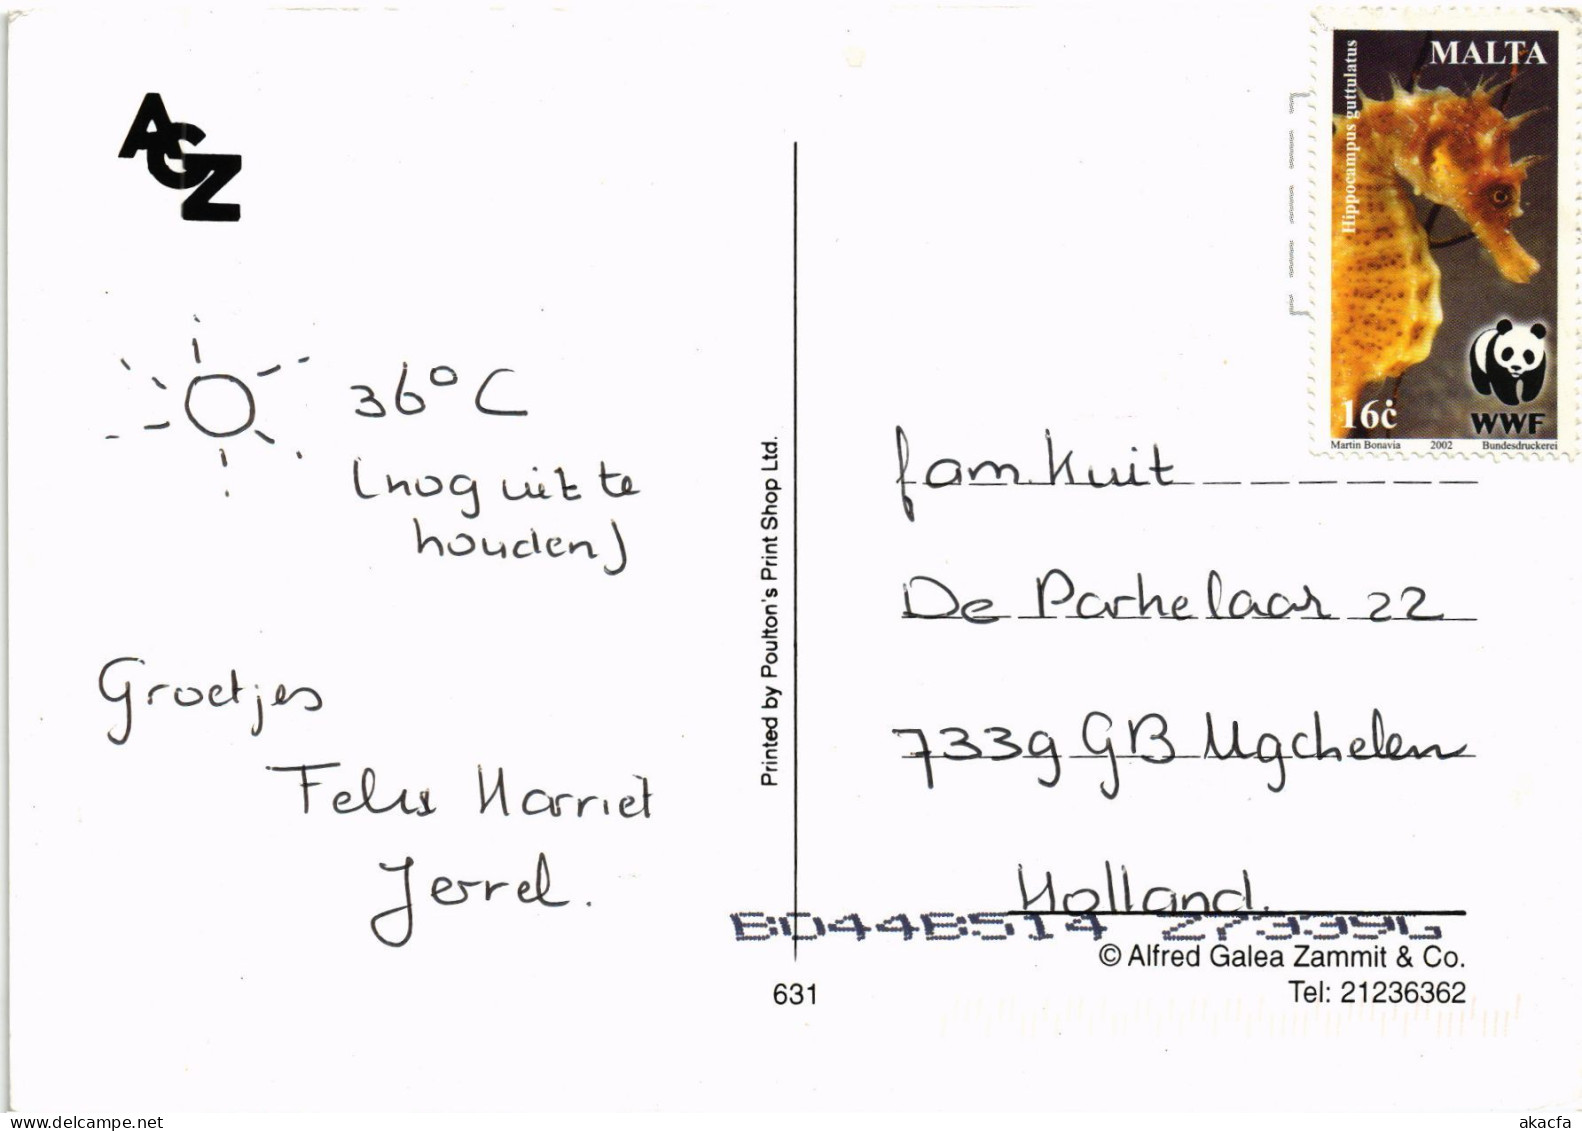 AGZ
36°C
(nog uit te
houden)
Groetjes
Felix Harriët
Jerrel.
Printed by Poulton's Print Shop Ltd.
631
MALTA
Hippocampus guttulatus
16ċ
WWF
Martin Bonavia 2002 Bundesdruckerei
fam. Kuit
De Parkelaar 22
7339 GB Ugchelen
Holland.
BD44BS14 27339G
© Alfred Galea Zammit & Co.
Tel: 21236362
www.delcampe.net
akacfa